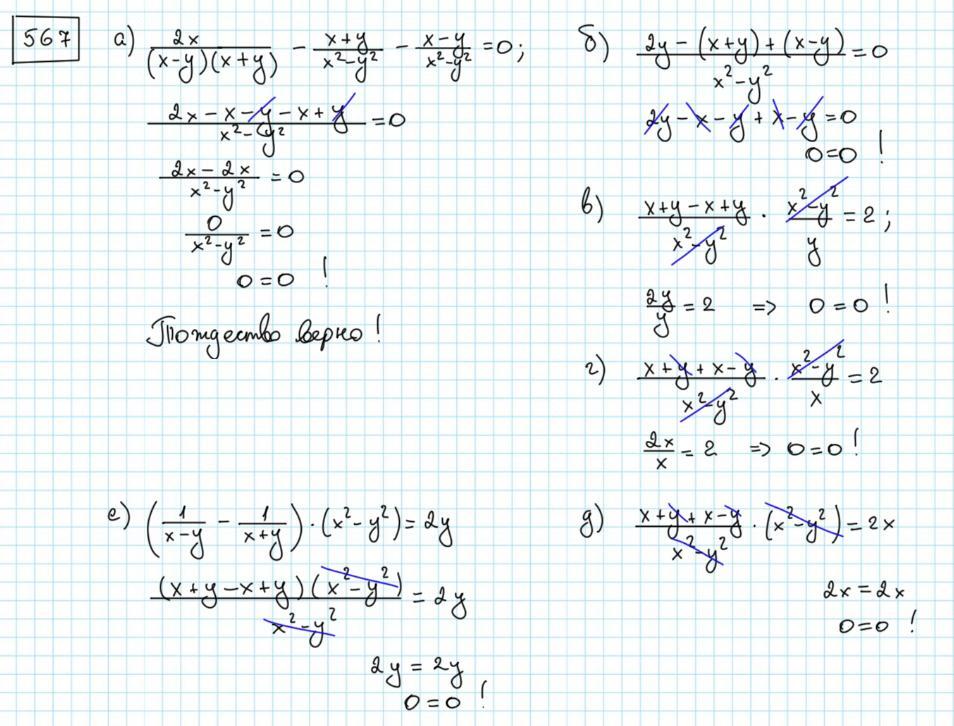 567
а) 2x/((x-y)(x+y)) - (x+y)/(x²-y²) - (x-y)/(x²-y²) = 0;
(2x - x - y - x + y)/(x²-y²) = 0
(2x - 2x)/(x²-y²) = 0
0/(x²-y²) = 0
0 = 0 !
Тождество верно !
б) (2y - (x+y) + (x-y))/(x²-y²) = 0
2y - x - y + x - y = 0
0 = 0 !
в) (x+y-x+y)/(x²-y²) · (x²-y²)/y = 2;
2y/y = 2 => 0 = 0 !
г) (x+y+x-y)/(x²-y²) · (x²-y²)/x = 2
2x/x = 2 => 0 = 0 !
е) (1/(x-y) - 1/(x+y)) · (x²-y²) = 2y
(x+y-x+y)(x²-y²)/(x²-y²) = 2y
2y = 2y
0 = 0 !
д) (x+y+x-y)/(x²-y²) · (x²-y²) = 2x
2x = 2x
0 = 0 !